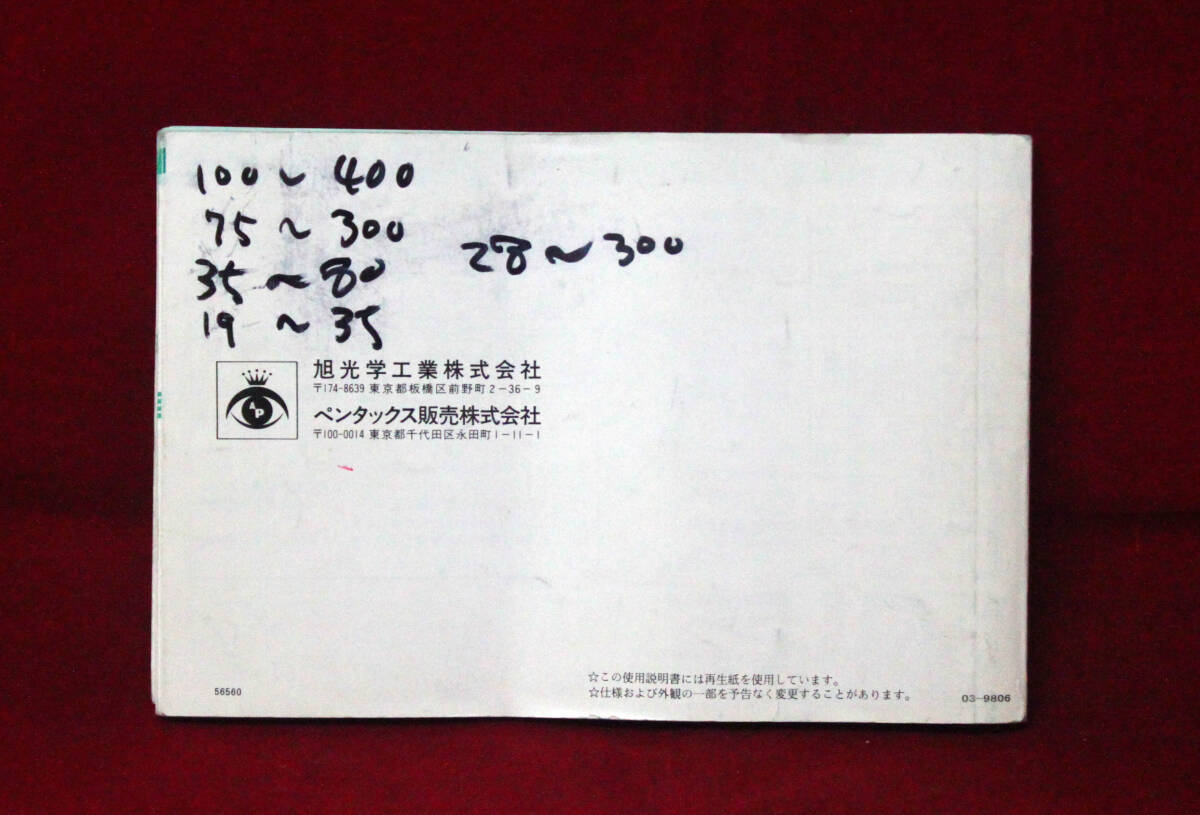 100 ~ 400
75 ~ 300
28 ~ 300
35 ~ 80
19 ~ 35
AP
旭光学工業株式会社
〒174-8639 東京都板橋区前野町2-36-9
ペンタックス販売株式会社
〒100-0014 東京都千代田区永田町1-11-1
☆この使用説明書には再生紙を使用しています。
☆仕様および外観の一部を予告なく変更することがあります。
56560
03-9806